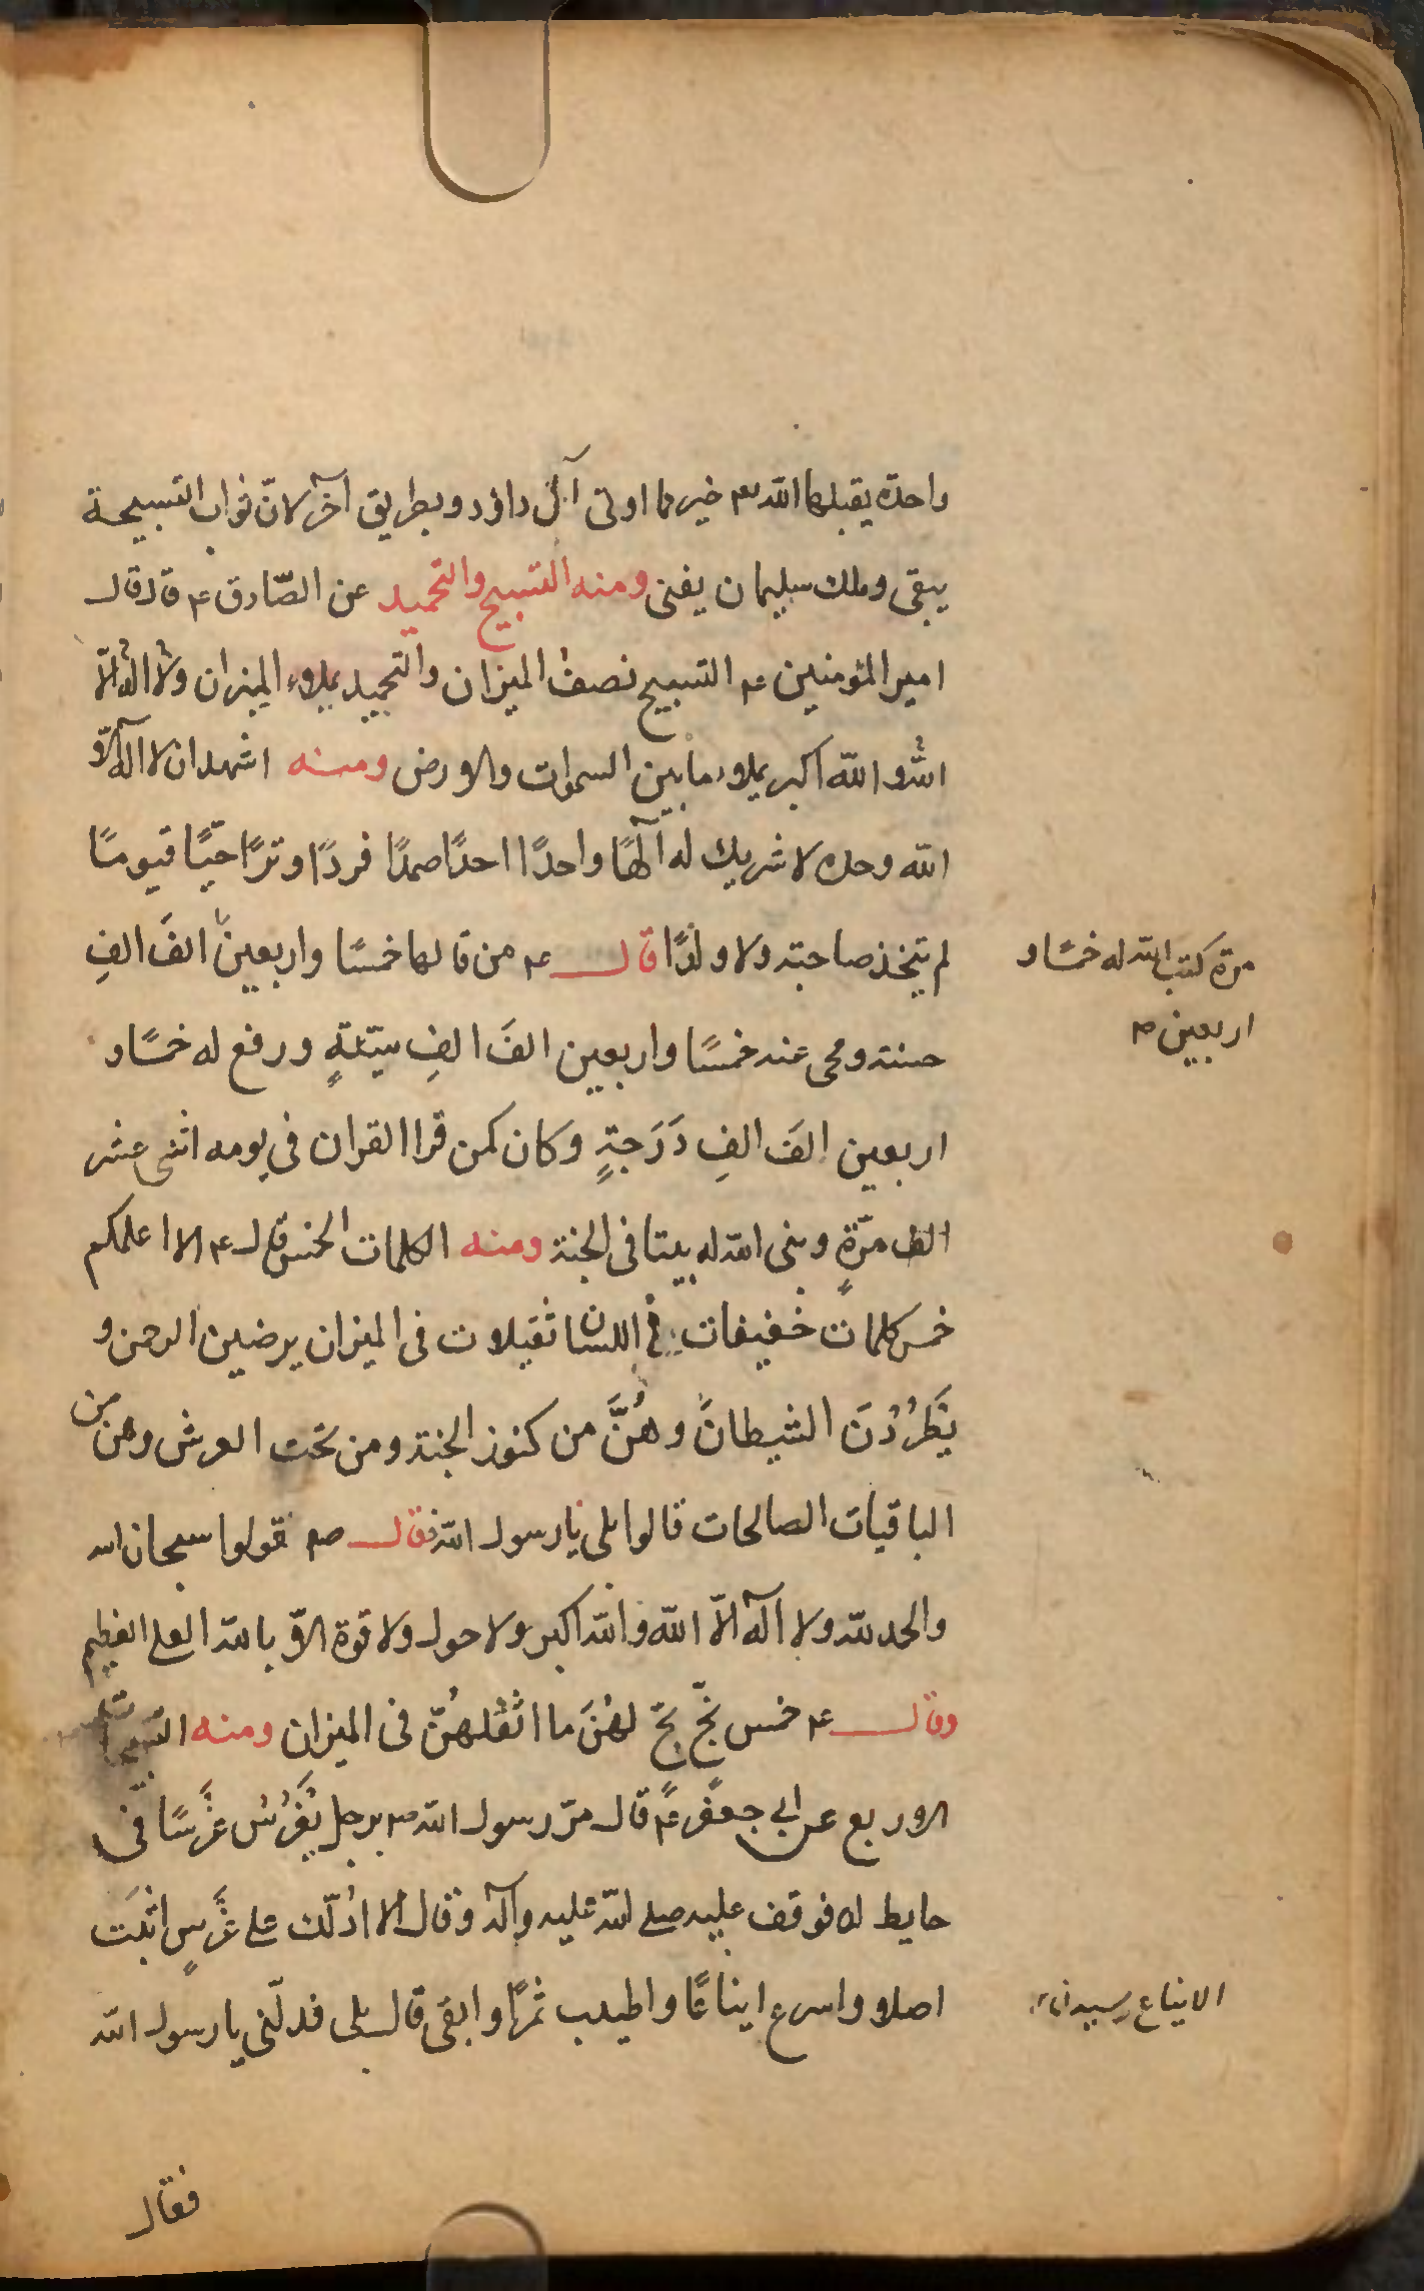 واحدة يقبلها الله تعم خير مما اوتى آل داؤد وبطريق آخر لانّ ثواب التسبيحة
يبقى وملك سليمان يفنى ومنه التسبيح والتحميد عن الصّادق ع قال قال
امير المؤمنين ع التسبيح نصف الميزان والتحميد يملاء الميزان ولا اله الّا
الله والله اكبر يملاء ما بين السموات والارض ومنه اشهد ان لا آله الّا
الله وحده لا شريك له آلهًا واحدًا احدًا صمدًا فردًا وترًا حيًّا قيومًا
لم يتخذ صاحبة ولا ولدًا قال ع من قالها خمسًا واربعين الفَ الفِ
مرة كتب الله له خمسًا و
اربعين م
حسنة ومحى عنه خمسًا واربعين الفَ الفِ سيّئةٍ ورفع له خمسًا و
اربعين الفَ الفِ دَرَجةٍ وكان كمن قرا القران فى يومه اثنى عشر
الف مرّةٍ وبنى الله له بيتا فى الجنة ومنه الكلمات الخمس قال ع الا اعلمكم
خمس كلمات خفيفات فى اللسان ثقيلات فى الميزان يرضين الرحمن و
يَطْرُدْنَ الشيطانَ وهُنَّ من كنوز الجنة ومن تحت العرش وهن من
الباقيات الصالحات قالوا بلى يا رسول الله فقال صم قولوا سبحان الله
والحمد لله ولا آله الّا الله والله اكبر ولا حول ولا قوة الّا بالله العلى العظيم
وقال ع خمس بخّ بخّ لهُنَ ما اثقلهُنّ فى الميزان ومنه التسبيحات
الاربع عن ابى جعفر ع قال مرّ رسول الله ص برجل يَغْرُسُ غَرْسًا فى
حايط له فوقف عليه صلى الله عليه وآله وقال الا ادُلّك على غَرْسٍ اثبَت
اصلا واسرع ايناعًا واطيب ثمرًا وابقى قال بلى فدلّنى يا رسول الله
الايناع رسيدن
فقال